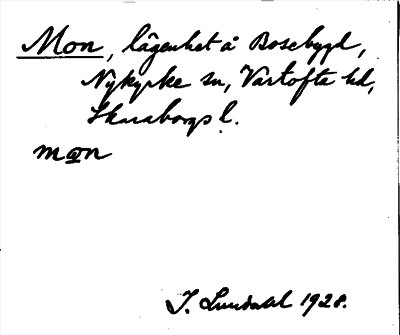 Mon, lägenhet å Bosebygd,
Nykyrke sn, Vartofta hd,
Skaraborgs l.
mɷn
I. Lundahl 1928.